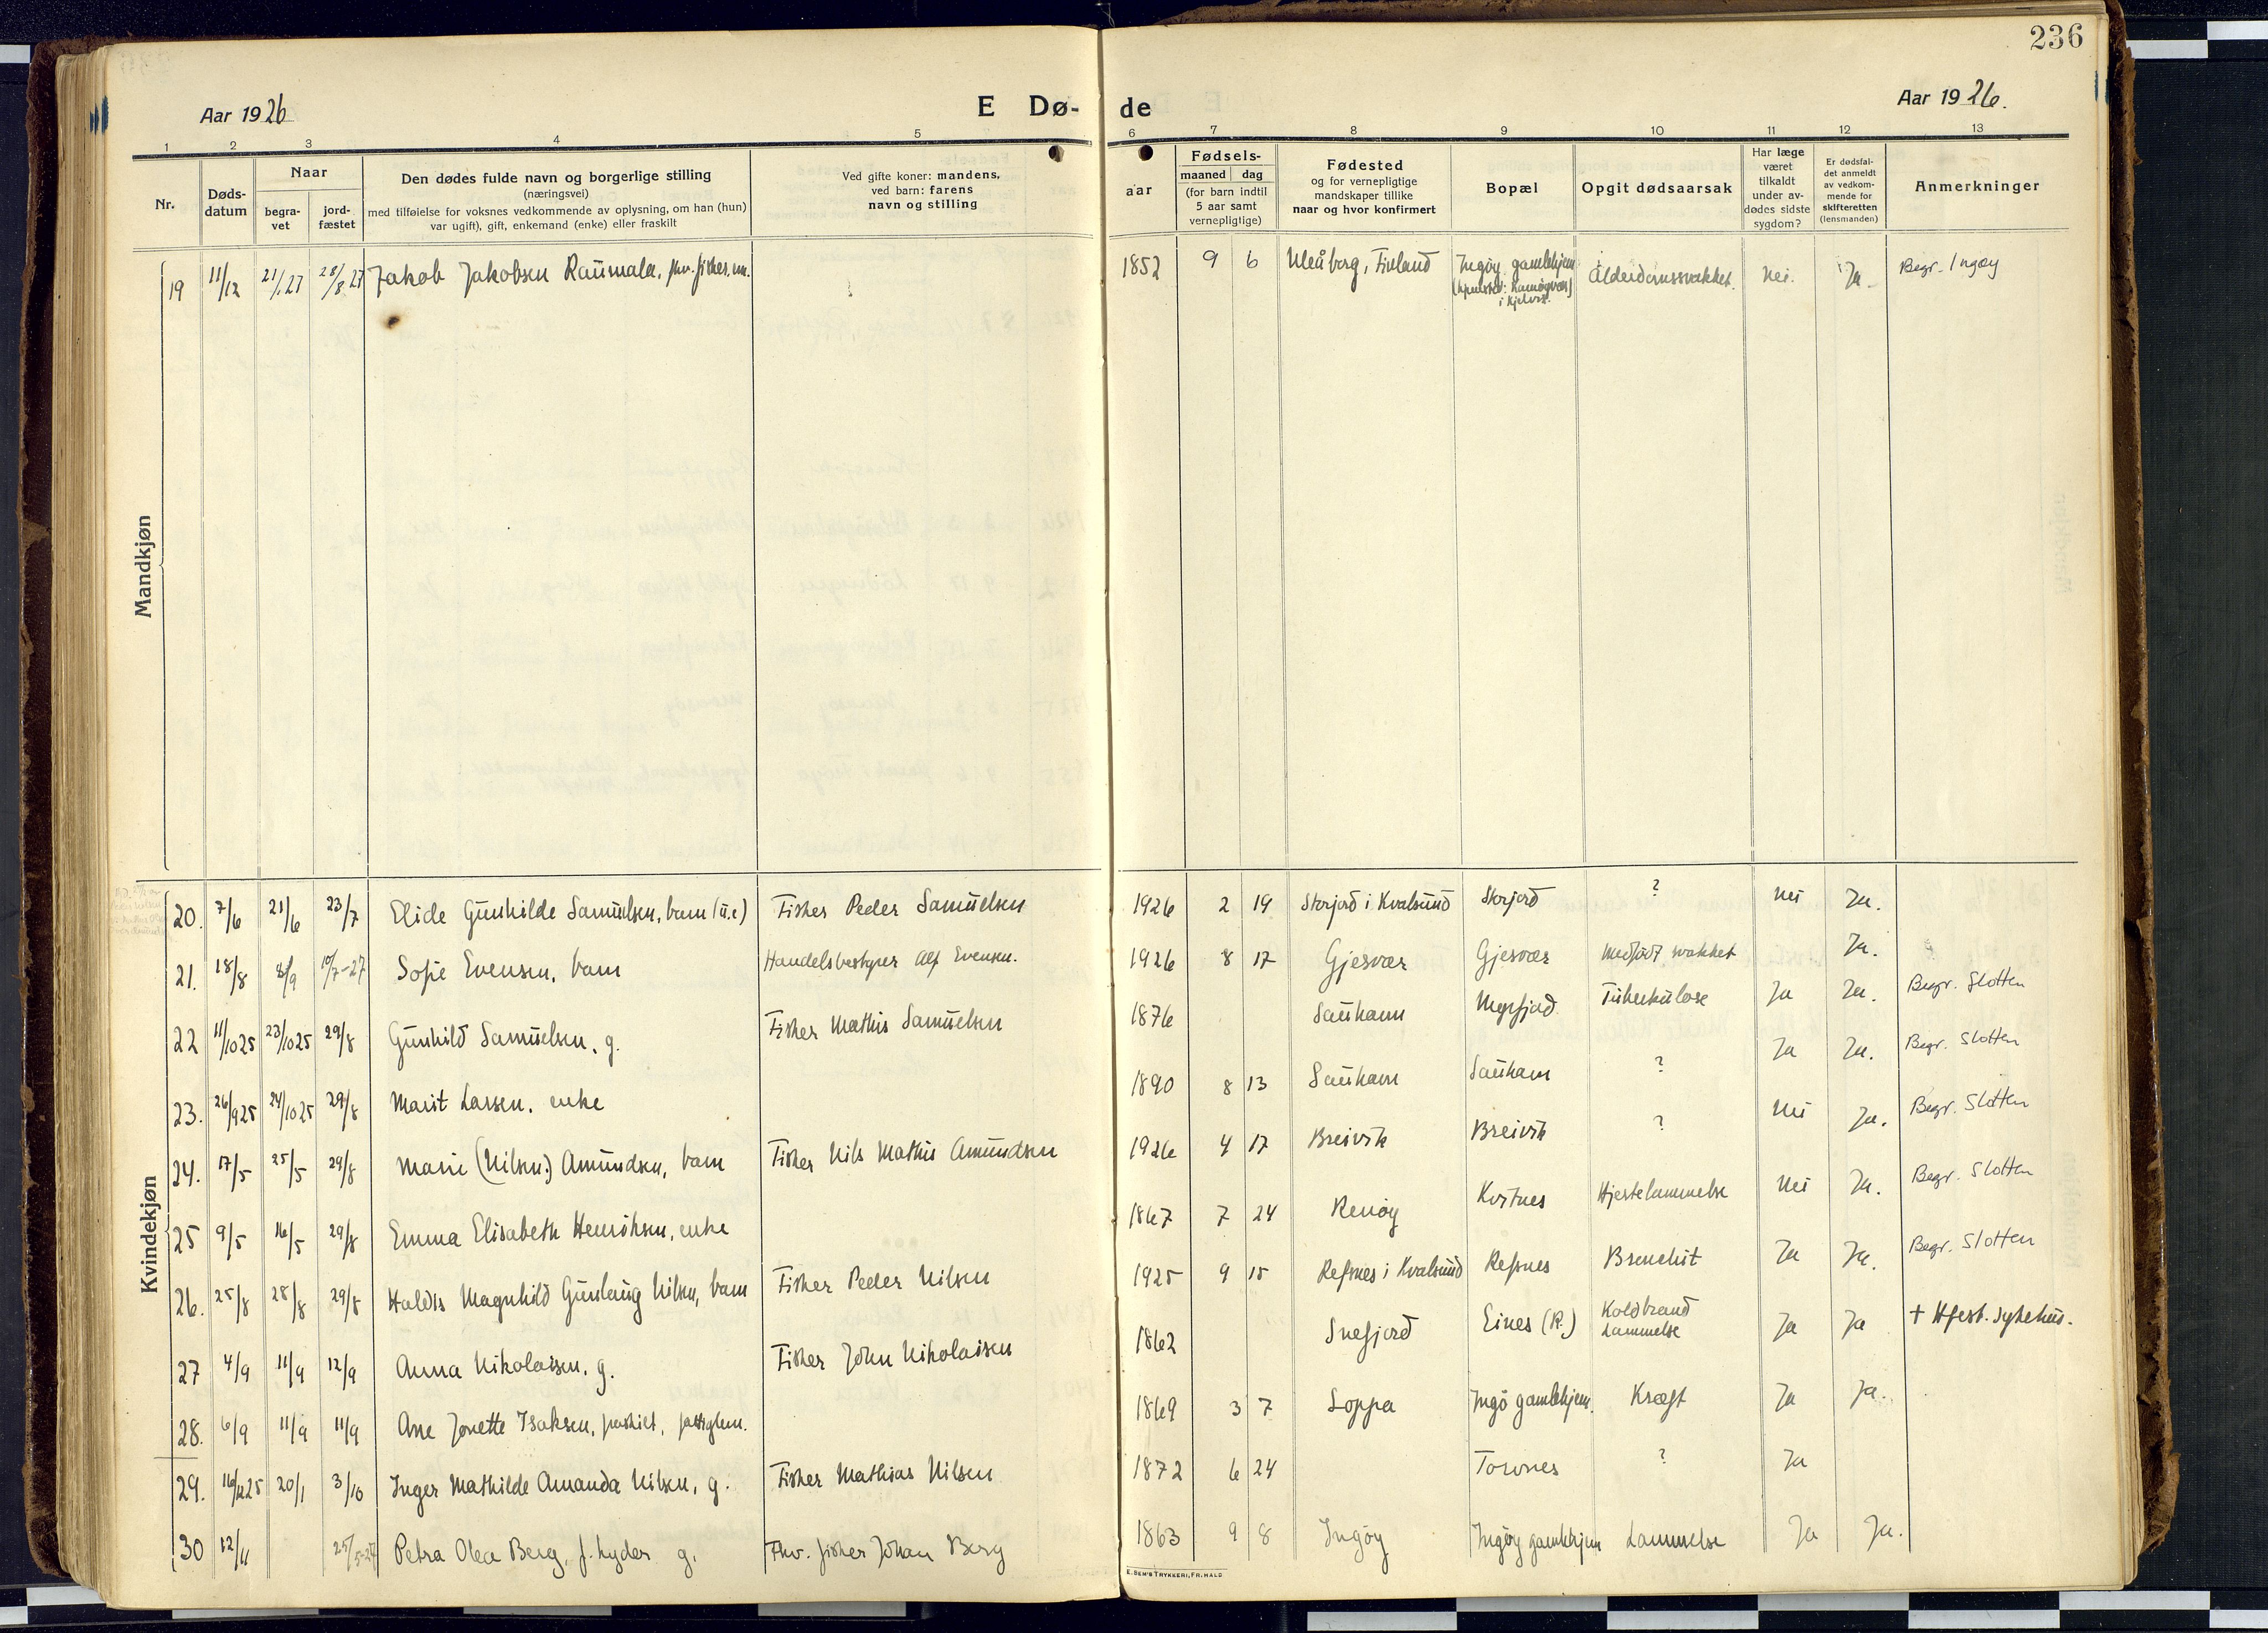 236
Aar 1926
E Dø-
de
Aar 1926.
1 2 3 4 5 6 7 8 9 10 11 12 13
Nr.
Døds-
datum
Naar
begra-
vet
jord-
fæstet
Den dødes fulde navn og borgerlige stilling
(næringsvei)
med tilføielse for voksnes vedkommende av oplysning, om han (hun)
var ugift), gift, enkemand (enke) eller fraskilt
Ved gifte koner: mandens,
ved barn: farens
navn og stilling
aar
Fødsels-
maaned dag
(for barn indtil
5 aar samt
vernepligtige)
Fødested
og for vernepligtige
mandskaper tillike
naar og hvor konfirmert
Bopæl
Opgit dødsaarsak
Har læge
været
tilkaldt
under av-
dødes sidste
sygdom?
Er dødsfal-
det anmeldt
av vedkom-
mende for
skifteretten
(lensmanden)
Anmerkninger
Mandkjøn
19 11/12 21/1 27 28/8 27 Jakob Jakobsen Raumala, fhv. fisker, 1852 9 6 Uleåborg, Finland Ingøy gamlehjem Alderdomssvakhet. Nei. Ja. Begr. Ingøy
i Kjelvik
Kvindekjøn
20. 7/6 21/6 23/7 Elide Gunhilde Samuelsen, barn (u.e) Fisker Peder Samuelsen 1926 2 19 Storjord i Kvalsund Storjord ? Nei Ja.
21. 18/8 8/9 10/7-27 Sofie Evensen, barn Handelsbestyrer Alf Evensen. 1926 8 17 Gjesvær Gjesvær Medfødt svakhet Ja.
22 11/10 25 23/10 25 29/8 Gunhild Samuelsen, g. Fisker Mathis Samuelsen 1876 Sauhamn Myrfjord Tuberkulose Ja Ja. Begr. Slotten
23. 26/9 25 24/10 25 29/8 Marit Larsen, enke 1890 8 13 Sauhamn Sauhamn ? Ja Ja. Begr. Slotten
24. 17/5 25/5 29/8 Marie (Nilsen) Amundsen, barn Fisker Nils Mathis Amundsen 1926 4 17 Breivik Breivik ? Nei Ja. Begr. Slotten
25 9/5 16/5 29/8 Emma Elisabeth Henriksen, enke 1867 7 24 Renøy Kvitnes Hjertelammelse Nei Ja. Begr. Slotten
26. 25/8 28/8 29/8 Haldis Magnhild Gunlaug Nilsen, barn Fisker Peder Nilsen 1925 9 15 Refsnes i Kvalsund Refsnes Bronchit Ja Ja. Begr. Slotten
27 4/9 11/9 12/9 Anna Nikolaisen, g. Fisker John Nikolaisen 1862 Snefjord Eines (R.) Koldbrand Ja Ja + Hfest. sykehus.
Lammelse
28. 6/9 11/9 11/9 Ane Jonette Isaksen, fraskilt, fattiglem. 1869 3 7 Loppa Ingø gamlehjem. Kræft Ja Ja.
29. 16/12 25 20/1 3/10 Inger Mathilde Amanda Nilsen, g. Fisker Mathias Nilsen 1872 6 24 Torvnes ? Ja
30 12/11 25/5-27 Petra Olea Berg, g. Fhv. fisker Johan Berg 1863 9 8 Ingøy Ingøy gamlehjem Lammelse Ja Ja.
E. SEM'S TRYKKERI, FR. HALD